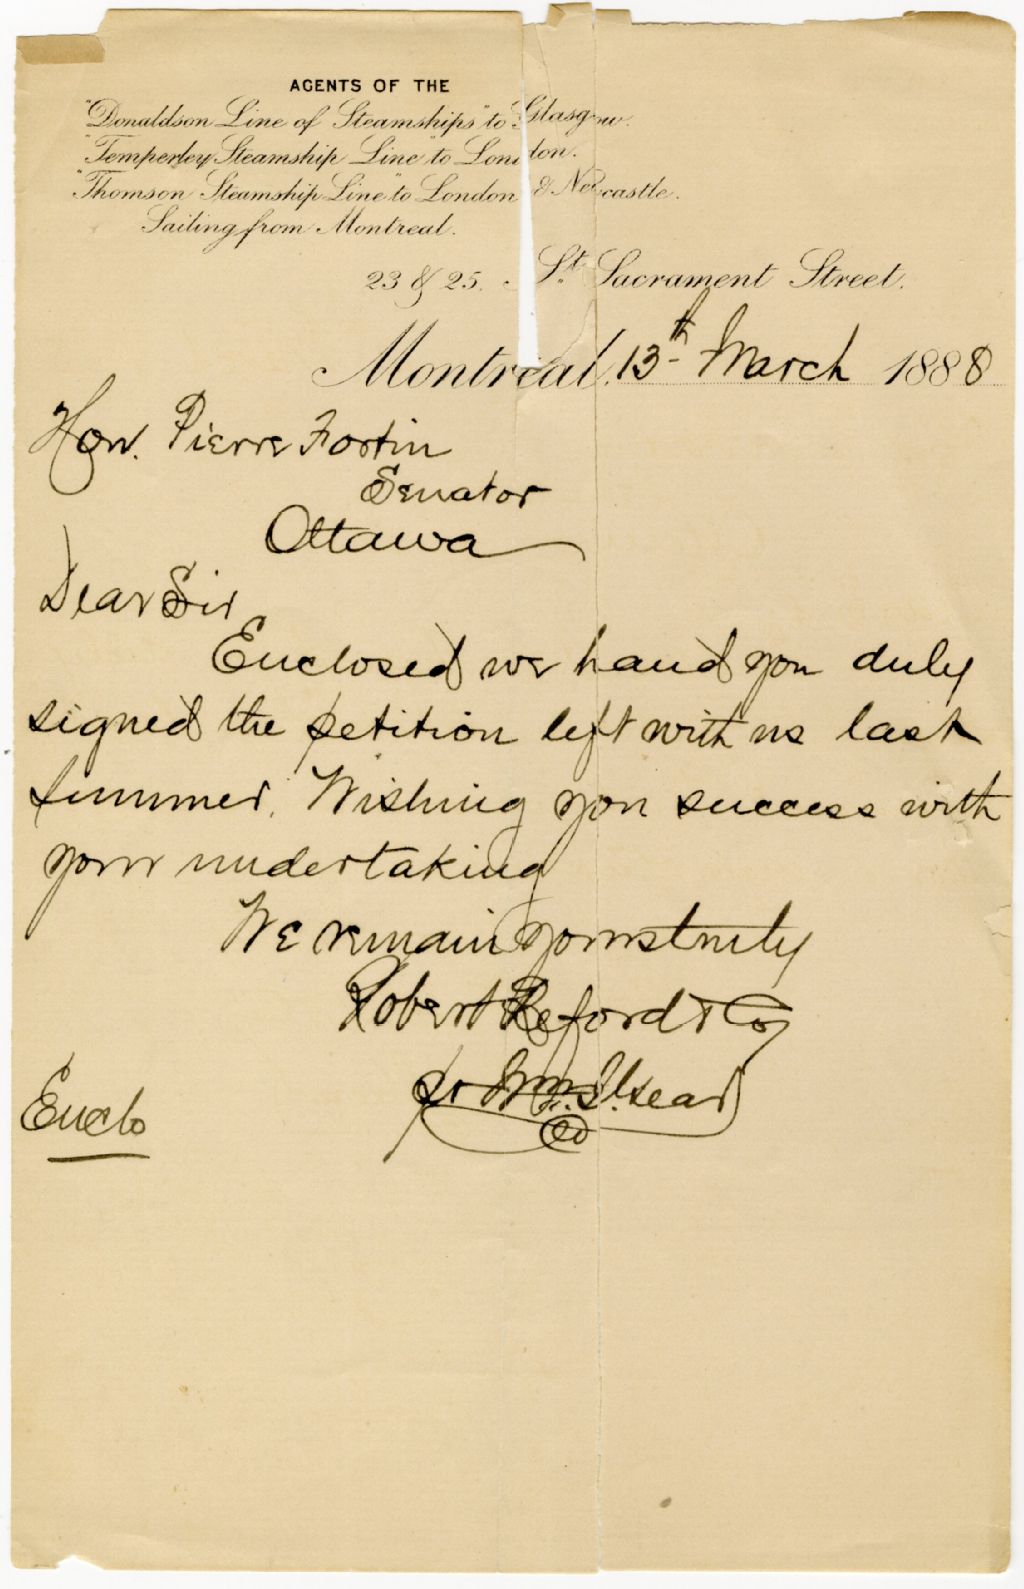 AGENTS OF THE
"Donaldson Line of Steamships" to Glasgow.
"Temperley Steamship Line" to London.
"Thomson Steamship Line" to London & Newcastle.
Sailing from Montreal.
23 & 25. St. Sacrament Street.
Montreal, 13th March 1888
Hon. Pierre Fortin
Senator
Ottawa
Dear Sir
Enclosed we hand you duly
signed the petition left with us last
summer. Wishing you success with
your undertaking
We remain yours truly
Robert Reford & Co
pr Wm.
Enclo